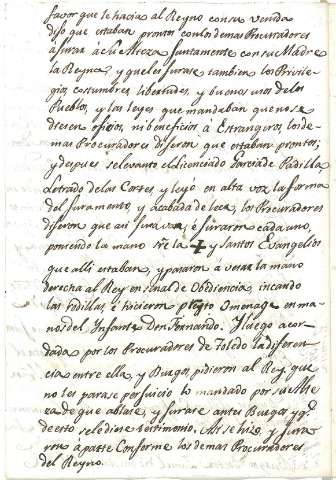 favor que se hacia al Reyno con su venida
dijo que estaban prontos con los demas Procuradores
a jurar à Su Alteza juntamente con su Madre
la Reyna, y que les jurase tambien los Privile-
gios, costumbres, libertades, y buenos usos de los
Pueblos, y las leyes que mandaban que no se
diesen oficios, ni beneficios à Estrangeros, los de-
mas Procuradores dijeron que estaban prontos;
y despues se levanto el Licenciado Garcia de Padilla
Letrado de las Cortes, y leyò en alta voz la forma
del Juramento, y acabada de leer, los Procuradores
dijeron que asi juraban, è juraron cada uno,
poniendo la mano sre la ✝ y santos Evangelios
que alli estaban, y pasaron à besar la mano
derecha al Rey en señal de Obediencia, incando
las rodillas, è hicieron pleyto Omenage en ma-
nos del Infante Don Fernando. Y luego acor-
dada por los Procuradores de Toledo la diferen-
cia entre ella, y Burgos, pidieron al Rey, que
no les parase perjuicio lo mandado por su Alte-
za de que ablase, y jurase antes Burgos y qe
de esto se le diese testimonio. Asi se hizo, y jura-
ron à parte Conforme los demas Procuradores
del Reyno.